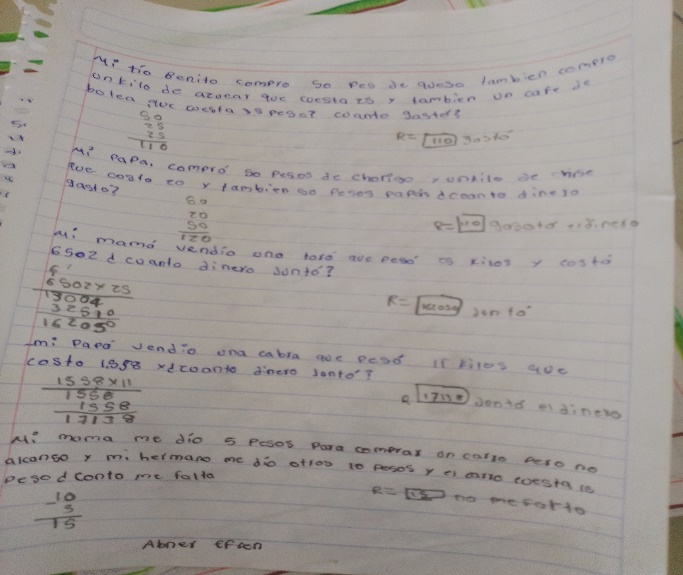 Mi tio Benito compro 50 Pes de queso tambien compro
unkilo de azucar que cuesta 25 y tambien un cafe de
bolea que cuesta 35 pesos? cuanto gasto?
50
25
110
R= 110 gasto
Mi PaPa. compró 50 Pesos de chorizo y unkilo de
que costo 20 y tambien 50 Pesos papas d cuanto dinero
gasto?
20
50
120
R= gasoto el dinero
Mi mamá vendio una toro que Pesó 25 kilos y costó
6502 d cuanto dinero Juntó?
6502 x 25
162050
R= Juntó
mi Papá vendio una cabra que Pesó 11 kilos que
costo 1,558 x d cuanto dinero Juntó?
1558 x 11
1558
1558
17138
R 17138 Juntó el dinero
Mi mama me dio 5 Pesos Para comprar un carro Pero no
alcanso y mi hermano me dio otros 10 Pesos y el carro cuesta 15
Peso d Conto me falto
10
5
15
R= 15 no me falto
Abner Efren